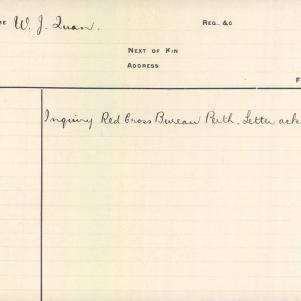 ME W. J. Quan. REG. &C
NEXT OF KIN
ADDRESS
F
Inquiry Red Cross Bureau Perth. Letter ack